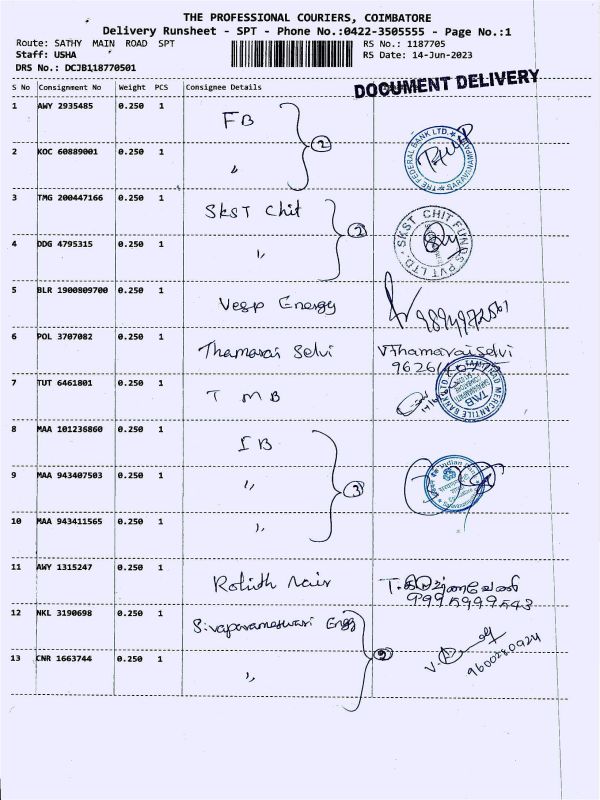 THE PROFESSIONAL COURIERS, COIMBATORE
Delivery Runsheet - SPT - Phone No.:0422-3505555 - Page No.:1
Route: SATHY MAIN ROAD SPT
RS No.: 1187705
Staff: USHA
RS Date: 14-Jun-2023
DRS No.: DCJB118770501
DOCUMENT DELIVERY
S No Consignment No Weight PCS Consignee Details
1 AWY 2935485 0.250 1 FB
2
2 KOC 60889001 0.250 1 〃
THE FEDERAL BANK LTD.
3 TMG 200447166 0.250 1 SKST Chit
2
SKST CHIT FUNDS PVT LTD.
4 DDG 4795315 0.250 1 〃
5 BLR 1900809700 0.250 1 Vesp Energy
6 POL 3707082 0.250 1 Thamarai Selvi V.Thamaraiselvi
7 TUT 6461801 0.250 1 TMB
TAMILNAD MERCANTILE BANK LTD
TMB
8 MAA 101236860 0.250 1 IB
9 MAA 943407503 0.250 1 〃
3
Indian Bank
10 MAA 943411565 0.250 1 〃
11 AWY 1315247 0.250 1 Rohith Nair
9995999543
12 NKL 3190698 0.250 1 Sivaparameswari Engg
2
9600280924
13 CNR 1663744 0.250 1 〃